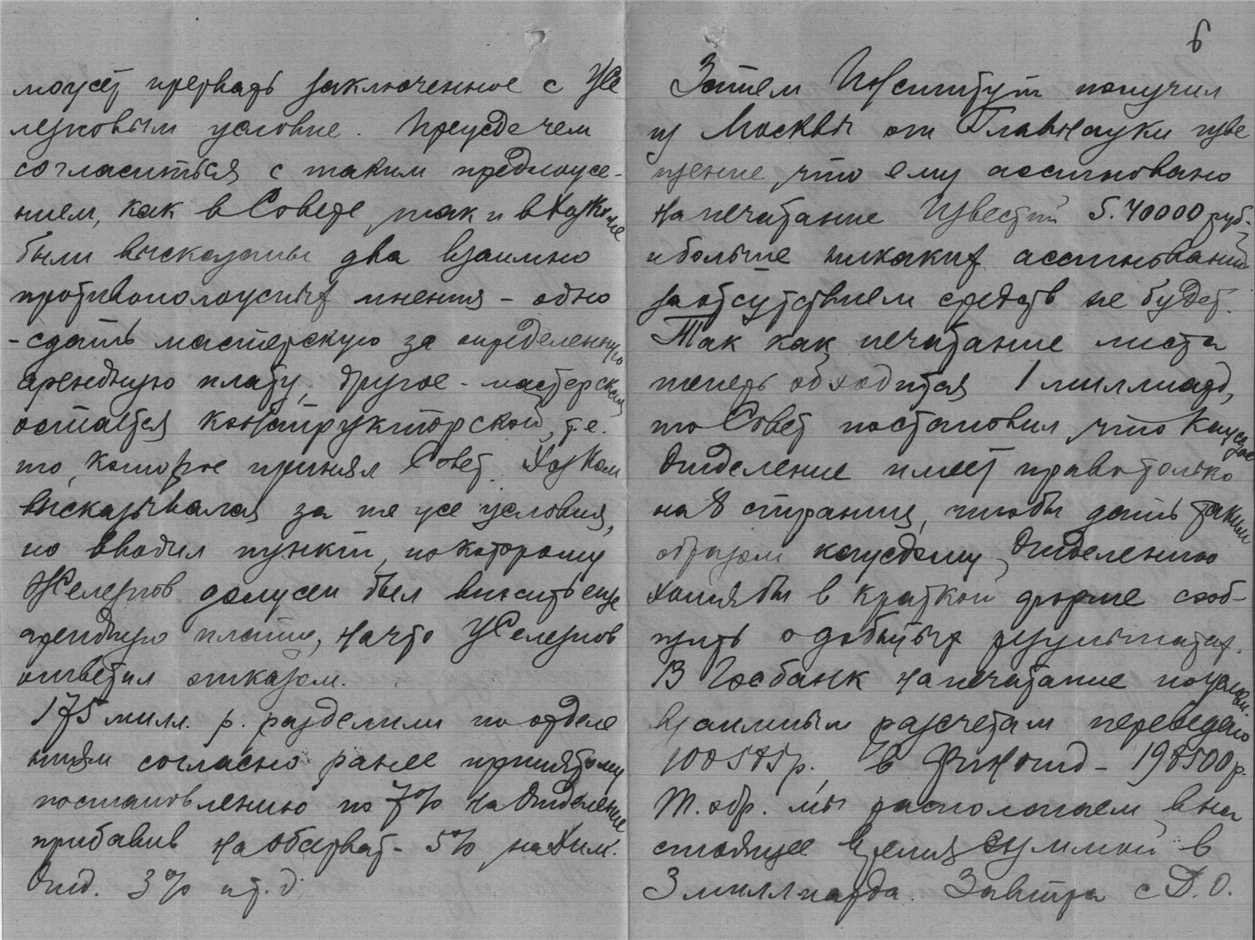 может прервать заключенное с Же
лезновым условие. Прежде чем
согласиться с таким предложе-
нием, как в Совете так и в Хозкоме
были высказаны два взаимно
противоположных мнения - одно
- сдать мастерскую за определенную
арендную плату, другое - мастерская
остается конструкторской, т.е.
то, которое принял Совет. Хозком
высказывался за те же условия,
но вводил пункт, по которому
Железнов должен был вносить еще
арендную плату, на что Железнов
ответил отказом.
175 милл. р. разделили по отделе
ниям согласно ранее принятому
постановлению по 7% на Отделение
прибавив на обсерват. 5% на Хим.
Отд. 3% и т.д.
6
Затем Институт получил
из Москвы от Главнауки изве
щение, что ему ассигновано
на печатание Известий 5.40000 руб.
и больше никаких ассигнований
за отсутствием средств не будет.
Так как печатание листа
теперь обходится 1 миллиард,
то Совет постановил, что каждое
Отделение имеет право только
на 8 страниц, чтобы дать таким
образом каждому Отделению
хотя бы в краткой форме сооб-
щить о добытых результатах.
В Госбанк на печатание по
взаимным расчетам переведено
В - 198500 р.
Т. обр. мы располагаем в на
стоящее время суммой в
3 миллиарда. Завтра с Д.О.